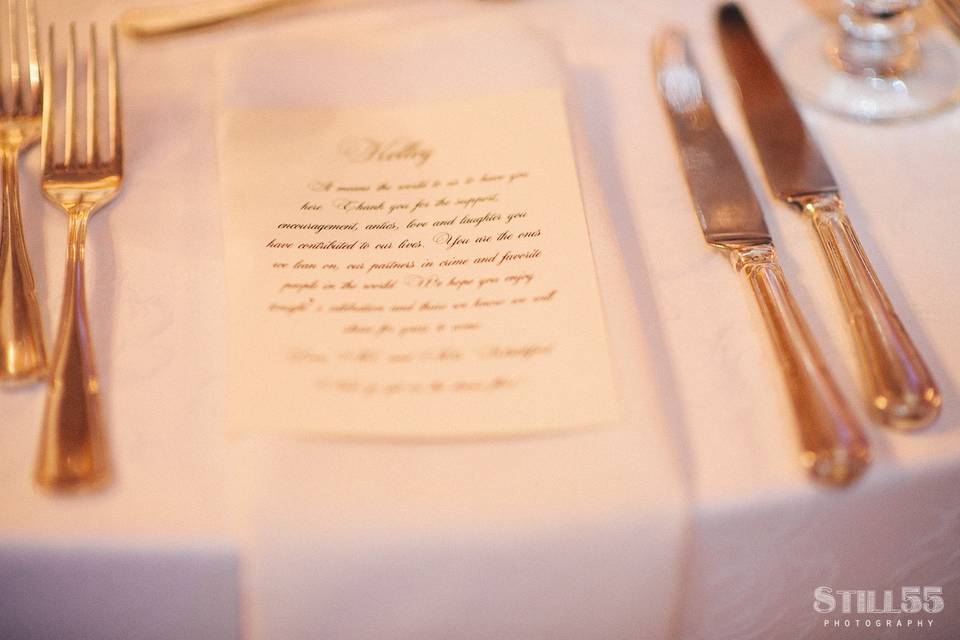 Kelley
It means the world to us to have you
here. Thank you for the support,
encouragement, antics, love and laughter you
have contributed to our lives. You are the ones
we lean on, our partners in crime and favorite
people in the world. We hope you enjoy
tonight's celebration and those we know we will
share for years to come.
Love, Mr. and Mrs.
on the dance floor!
STILL55
PHOTOGRAPHY